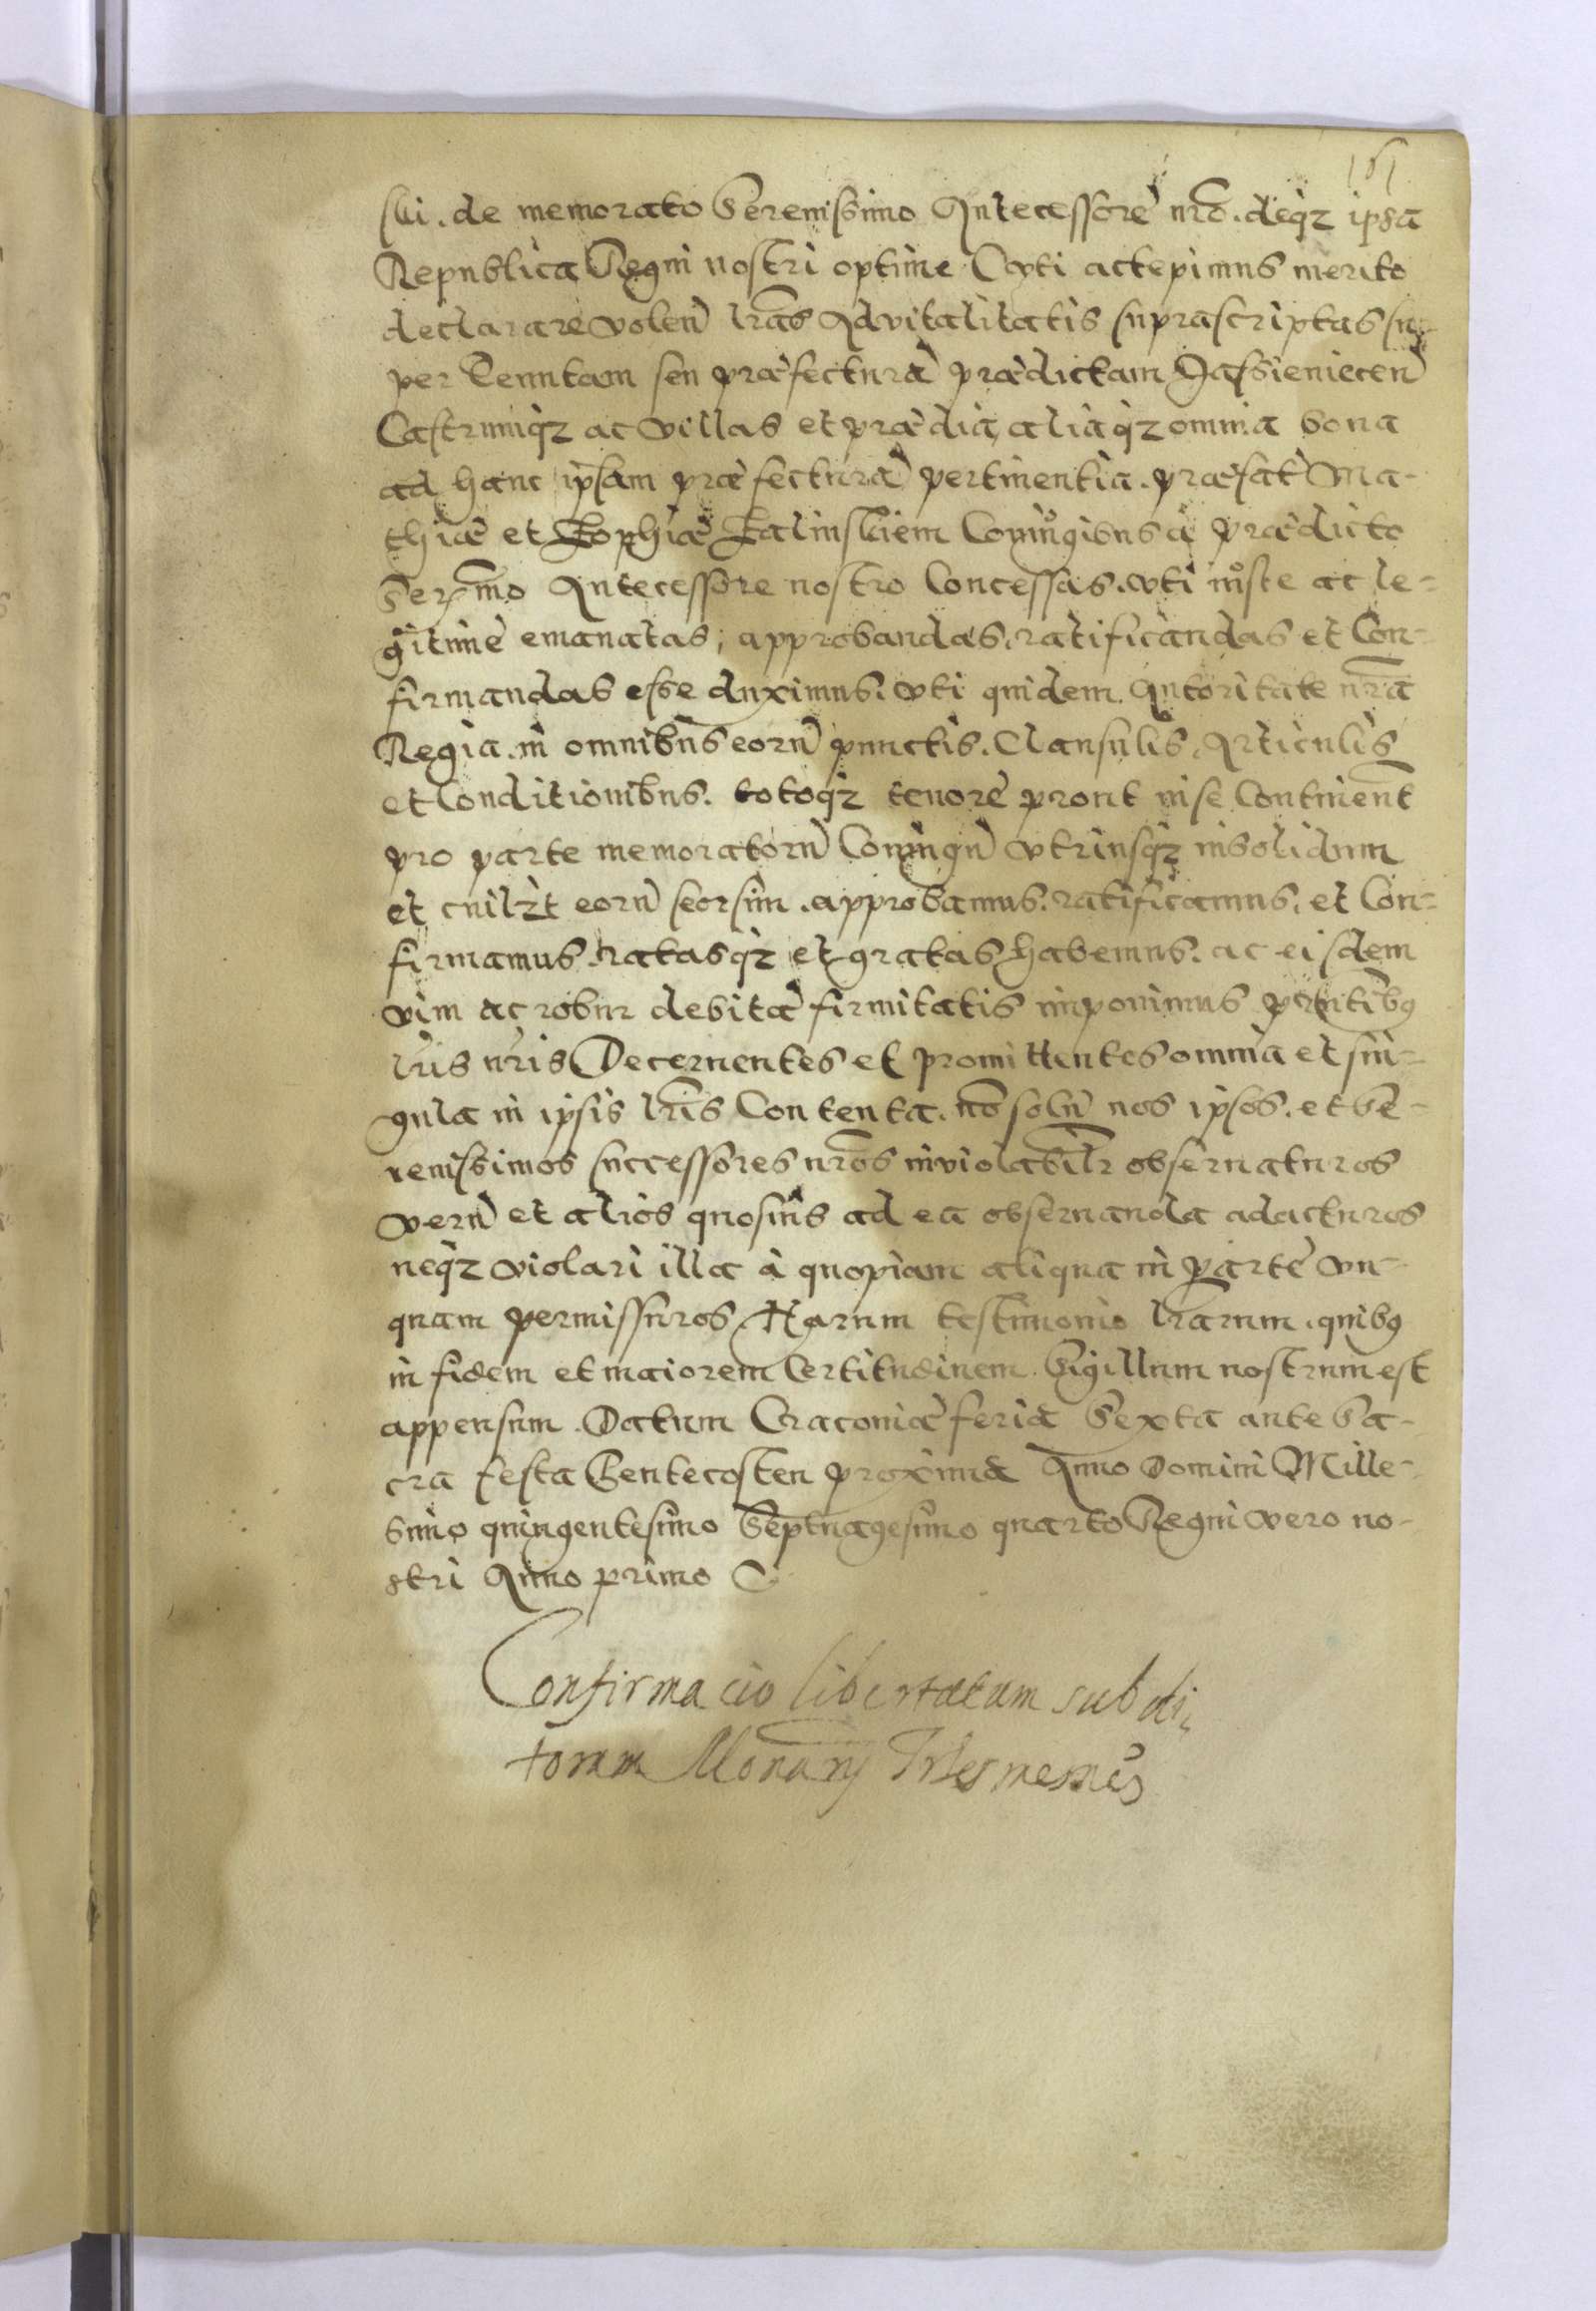 161
ski. de memorato Serenissimo Antecessore nr̃o. deq̃z ipsa
Republica Regni nostri optime (vti accepimus merito
declarare volen̄ lr̃as Advitalitatis suprascriptas su-
per Tenutam seu præfecturā prædictam Jassieniecen̄
Castrumq̃z ac villas et prædia, aliaq̃z omnia bona
ad hanc ipsam præfecturā pertinentia. præfat̃ Ma-
thiæ et Zophiæ Zalinskiem Coniugibus à prædicto
Ser͂mo Antecessore nostro Concessas. vti iuste ac le-
gitime emanatas, approbandas, ratificandas et Con-
firmandas esse duximus. vti quidem Autoritate nr̃a
Regia. in omnibus eorū punctis. Clausulis, Articulis
et Conditionibus. totoq̃z tenore prout in se Continent
pro parte memoratorū Coniugū vtriusq̃z insolidum
et cuilzt eorū seorsim. approbamus. ratificamus, et Con-
firmamus. ratasq̃z et gratas habemus. ac eisdem
vim ac robur debitæ firmitatis imponimus pñtibg
lr̃is nr̃is Decernentes et promittentes omnia et sin-
gula in ipsis lr̃is Contenta. nō solū nos ipsos. et Se-
renissimos successores nr̃os inviolabilr̃ obseruaturos
verū et alios quosuis ad ea obseruanda adacturos
neq̃z violari illa à quopiam aliqua in parte vn-
quam permissuros. Harum testimonio lr̃arum. quibg
in fidem et maiorem Certitudinem Sigillum nostrum est
appensum. Datum Cracouiæ feria Sexta ante Sa-
cra festa Pentecosten proxima Anno Domini Mille-
simo quingentesimo Septuagesimo quarto Regni vero no-
stri Anno primo
Confirmacio libertatum subdi,
torum Monarij